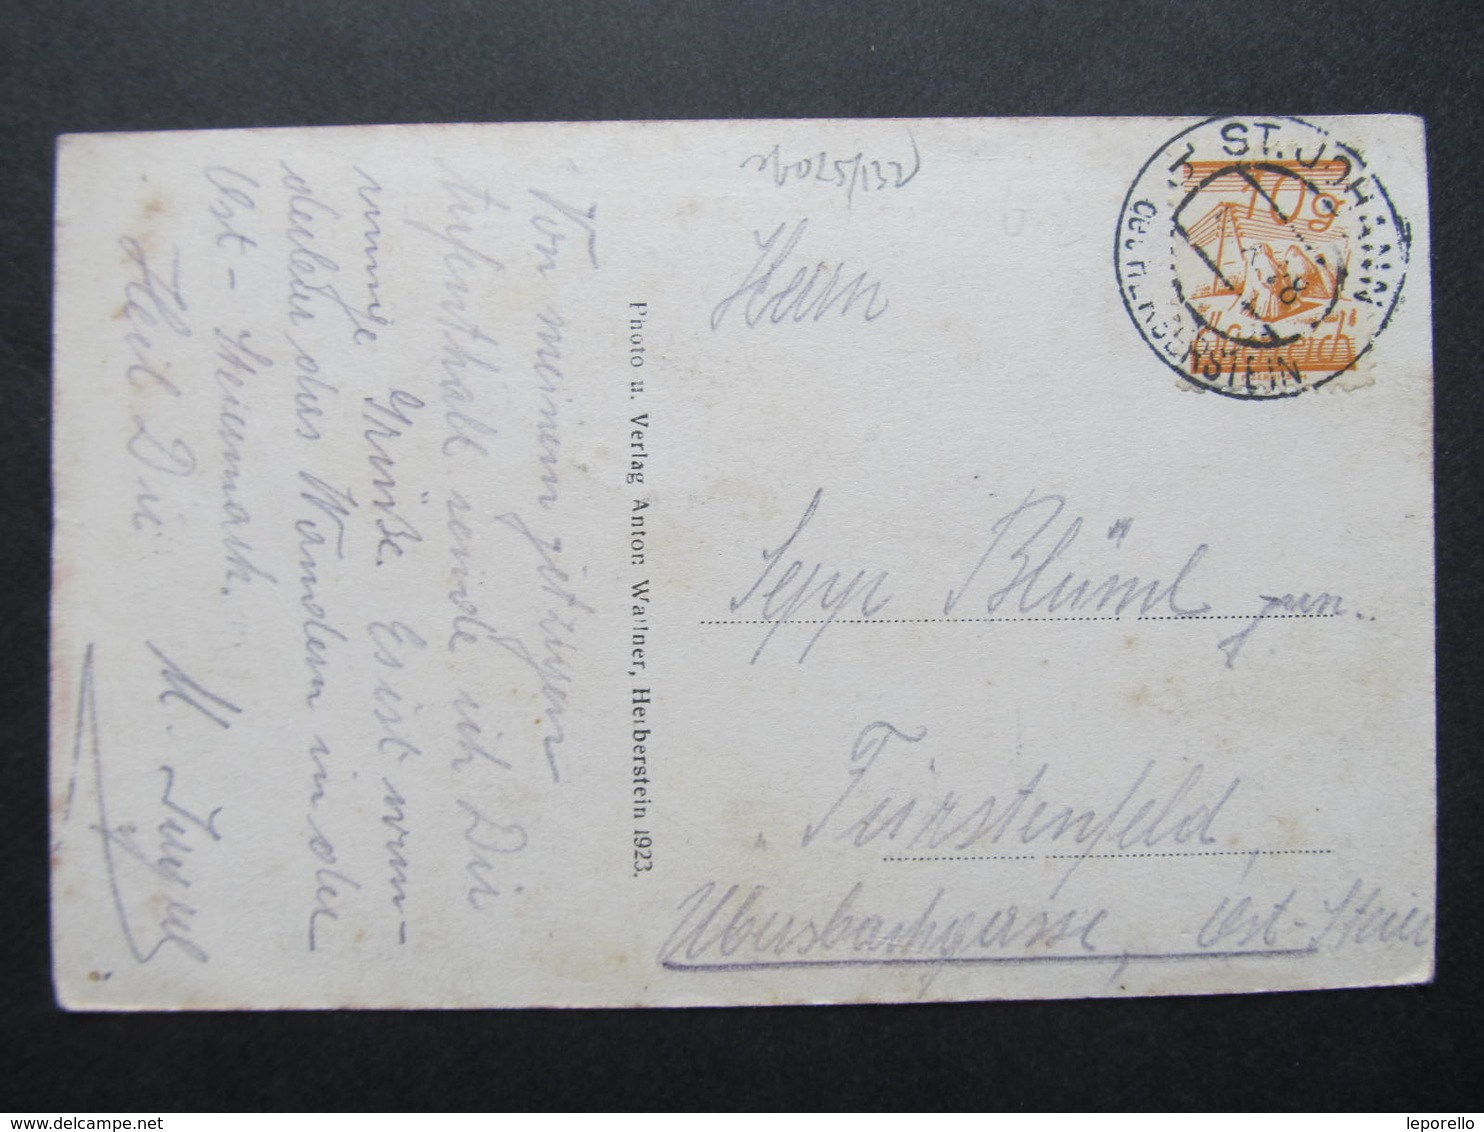 Von meinem jetzigen
Aufenthalt sende ich Dir
innige Grüße. Es ist wun-
derbar das Wandern in der
Ost-Steiermark.
Heil Dir
Photo u. Verlag Anton Wallner, Herberstein 1923.
ST. JOHANN
BEI HERBERSTEIN
10g
Österreich
Herrn
Sepp Blüml jun.
Fürstenfeld,
Ost-Steier
leporello